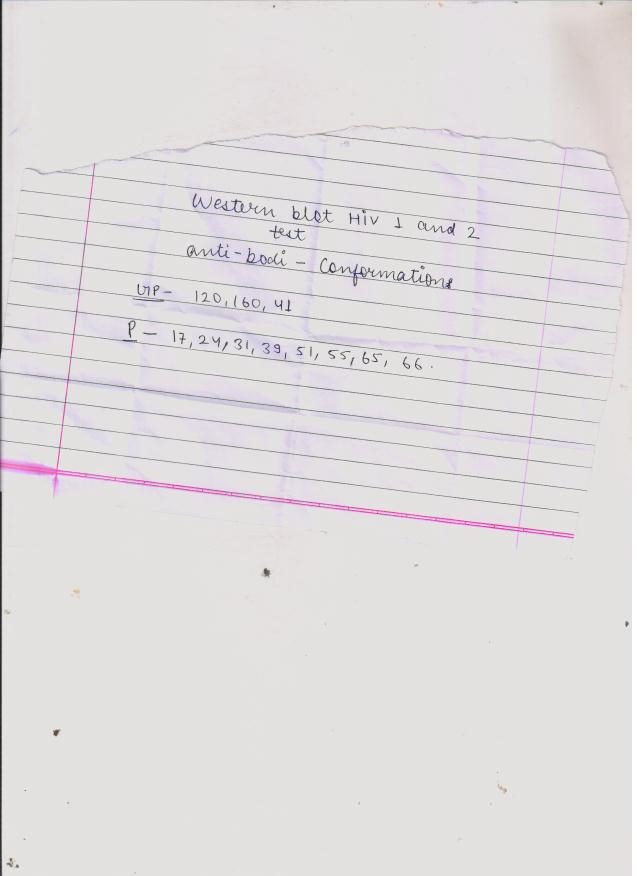 Western blot HiV 1 and 2
test
anti-bodi - Conformations
GP- 120, 160, 41
P - 17, 24, 31, 39, 51, 55, 65, 66.